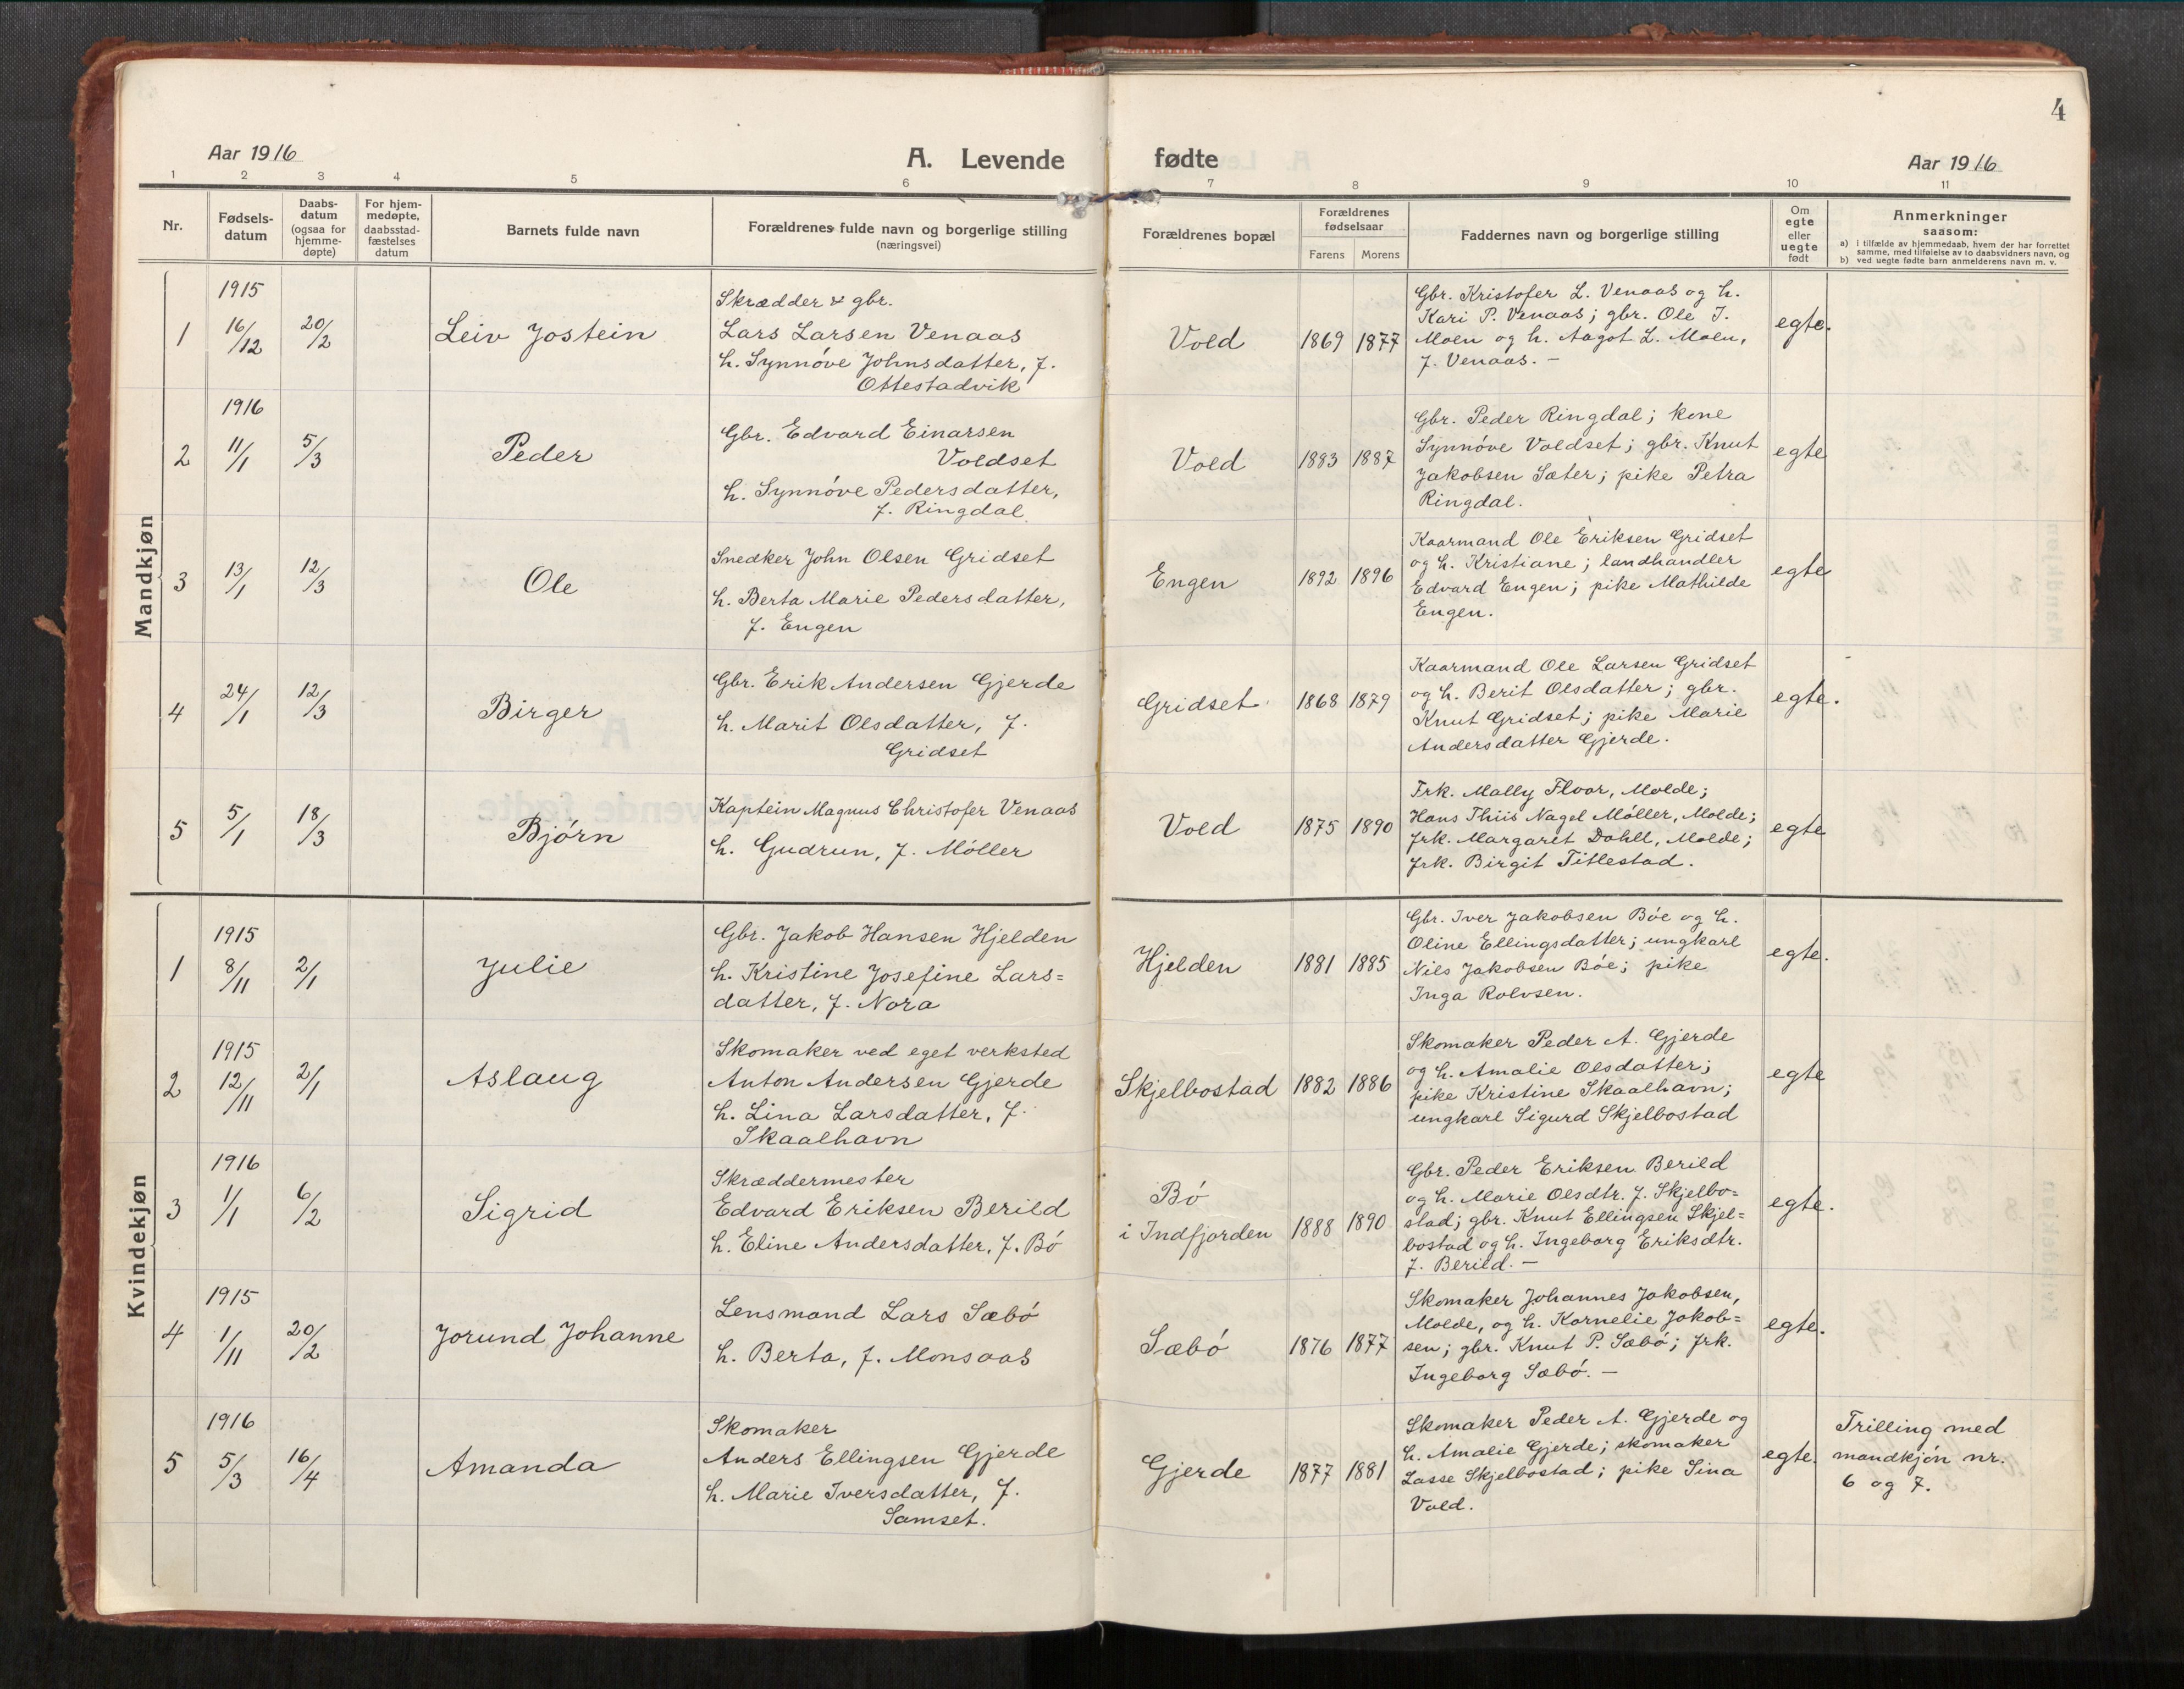 4
Aar 1916
A. Levende fødte
Aar 1916
1 2 3 4 5 6 7 8 9 10 11
Nr.
Fødsels-
datum
Daabs-
datum
(ogsaa for
hjemme-
døpte)
For hjem-
medøpte,
daabsstad-
fæstelses
datum
Barnets fulde navn
Forældrenes fulde navn og borgerlige stilling
(næringsvei)
Forældrenes bopæl
Forældrenes
fødselsaar
Farens Morens
Faddernes navn og borgerlige stilling
Om
egte
eller
uegte
født
Anmerkninger
saasom:
a) i tilfælde av hjemmedaab, hvem der har forrettet
samme, med tilføielse av to daabsvidners navn, og
b) ved uegte fødte barn anmelderens navn m. v.
Mandkjøn
1
1915
16/12
20/2
Leiv Jostein
Skrædder & gbr.
Lars Larsen Venaas
h. Synnöve Johnsdatter, f.
Ottestadvik
Vold
1869 1877
Gbr. Kristofer L. Venaas og h.
Kari P. Venaas; gbr. Ole J.
Moen og h. Aagot L. Moen,
f. Venaas. –
egte.
2
1916
11/1
5/3
Peder
Gbr. Edvard Einarsen
Voldset
h. Synnöve Pedersdatter,
f. Ringdal
Vold
1883 1887
Gbr. Peder Ringdal; kone
Synnöve Voldset; gbr. Knut
Jakobsen Sæter; pike Petra
Ringdal.
egte
3
13/1
12/3
Ole
Snedker John Olsen Gridset
h. Berta Marie Pedersdatter,
f. Engen
Engen
1892 1896
Kaarmand Ole Eriksen Gridset
og h. Kristiane; landhandler
Edvard Engen; pike Mathilde
Engen.
egte
4
24/1
12/3
Birger
Gbr. Erik Andersen Gjerde
h. Marit Olsdatter, f.
Gridset
Gridset
1868 1879
Kaarmand Ole Larsen Gridset
og h. Berit Olsdatter; gbr.
Knut Gridset; pike Marie
Andersdatter Gjerde.
egte.
5
5/1
18/3
Björn
Kaptein Magnus Christofer Venaas
h. Gudrun, f. Möller
Vold
1875 1890
Frk. Mally Floor, Molde;
Hans Thiis Nagel Möller, Molde;
frk. Margaret Dahll, Molde;
frk. Birgit Titlestad.
egte
Kvindekjøn
1
1915
8/11
2/1
Julie
Gbr. Jakob Hansen Hjelden
h. Kristine Josefine Lars=
datter, f. Nora
Hjelden
1881 1885
Gbr. Iver Jakobsen Böe og h.
Oline Ellingsdatter; ungkarl
Nils Jakobsen Böe; pike
Inga Rolvsen.
egte.
2
1915
12/11
2/1
Aslaug
Skomaker ved eget verksted
Anton Andersen Gjerde
h. Lina Larsdatter, f.
Skaalhavn
Skjelbostad
1882 1886
Skomaker Peder A. Gjerde
og h. Amalie Olsdatter;
pike Kristine Skaalhavn;
ungkarl Sigurd Skjelbostad
egte
3
1916
1/1
6/2
Sigrid
Skræddermester
Edvard Eriksen Berild
h. Eline Andersdatter, f. Bö
Bö
i Indfjorden
1888 1890
Gbr. Peder Eriksen Berild
og h. Marie Olsdtr. f. Skjelbo=
stad; gbr. Knut Ellingsen Skjel=
bostad og h. Ingeborg Eriksdtr.
f. Berild. –
egte.
4
1915
1/11
20/2
Jorund Johanne
Lensmand Lars Sæbö
h. Berta, f. Monsaas
Sæbö
1876 1877
Skomaker Johannes Jakobsen,
Molde, og h. Kornelie Jakob=
sen; gbr. Knut P. Sæbö; frk.
Ingeborg Sæbö. –
egte.
5
1916
5/3
16/4
Amanda
Skomaker
Anders Ellingsen Gjerde
h. Marie Iversdatter, f.
Samset.
Gjerde
1877 1881
Skomaker Peder A. Gjerde og
h. Amalie Gjerde; skomaker
Lasse Skjelbostad; pike Sina
Vold.
egte.
Trilling med
mandkjön nr.
6 og 7.